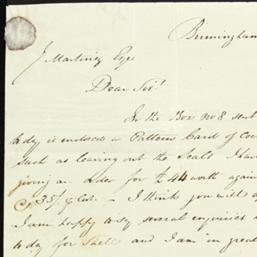 Birmingham
J Martinez Esqr
Dear Sir!
In the Box No 8 sent
to day is enclosed a Pattern Card of
Such as leaving out the Seals I have
giving an order for £ 44 worth again
35/ I think you will
I am happy to say several enquiries
to day for Shell and I am in great